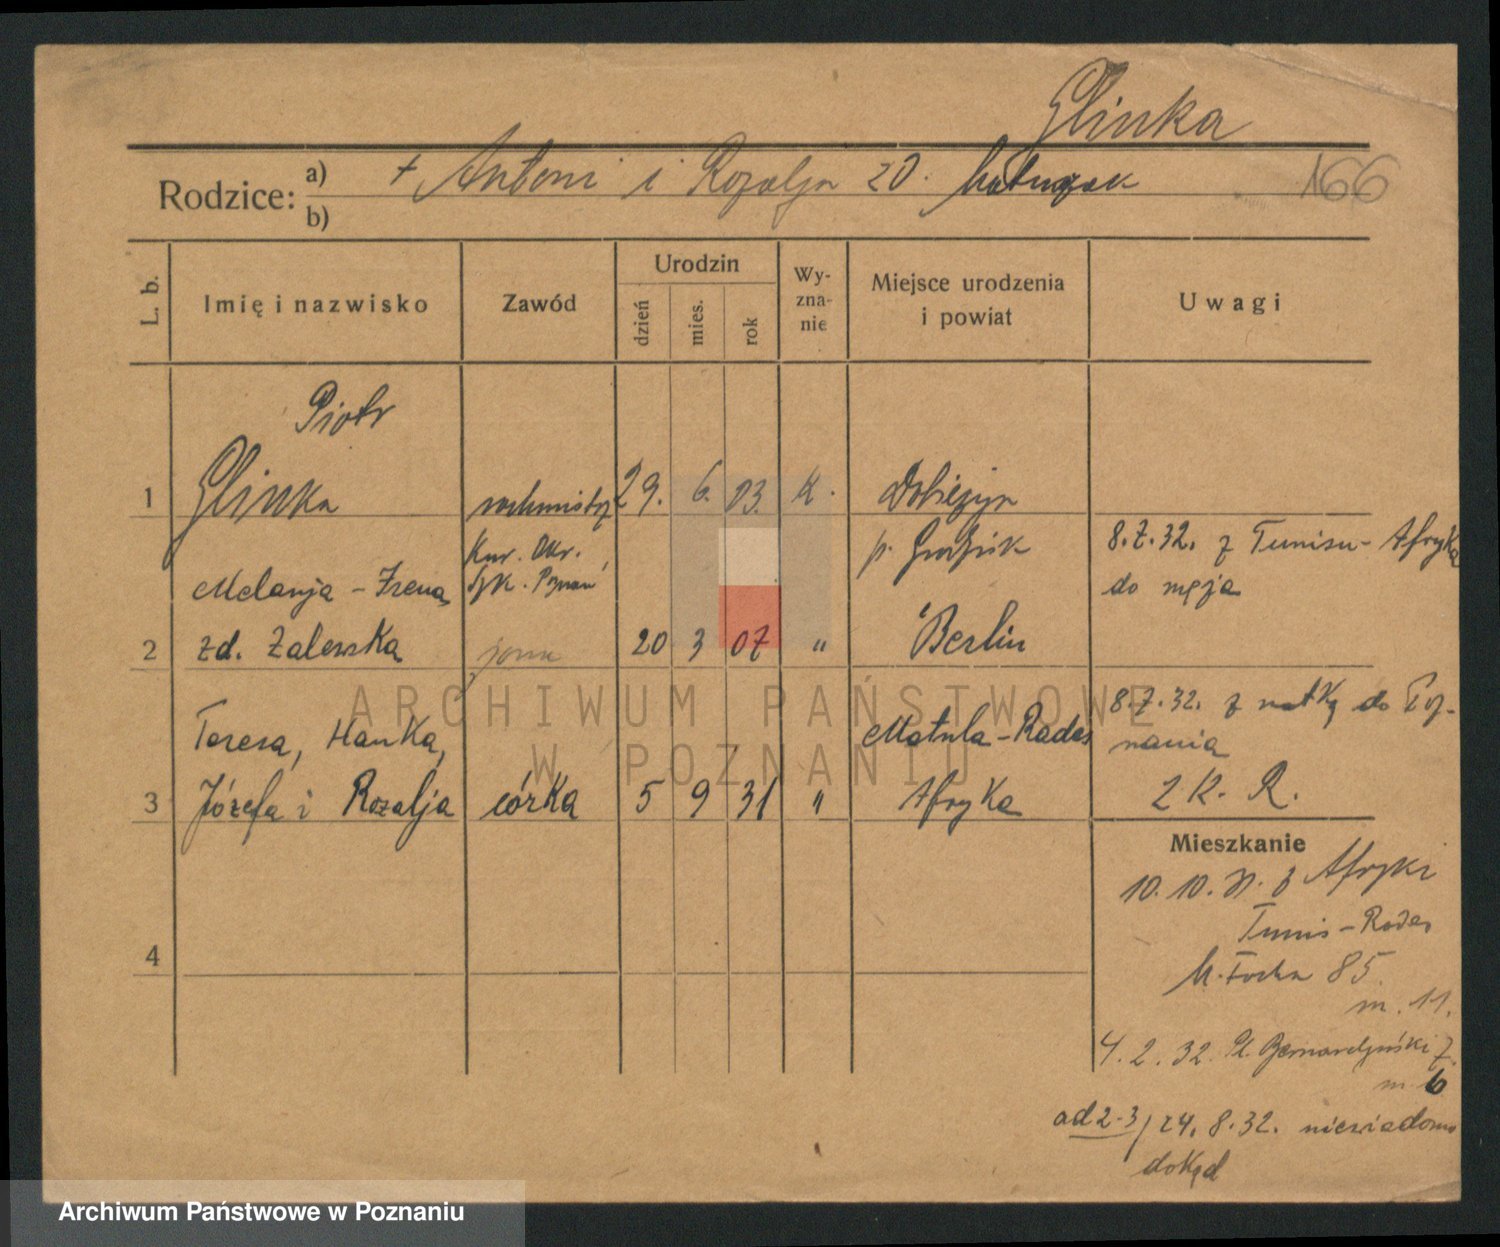 Glinka
Rodzice: a) + Antoni i Rozalja zd.
b)
166
L. b.
Imię i nazwisko
Zawód
Urodzin
dzień
mies.
rok
Wy-
zna-
nie
Miejsce urodzenia
i powiat
Uwagi
Piotr
1 Glinka 29. 6. 03. k. Dobieżyn
Kur. Okr.
Szk. Poznań
p. Grodzisk
8.7.32. z Tunisu-Afryka
do męża
Melanja - Irena
2 zd. Zalewska żona 20 3 07 " Berlin
8.7.32. z matką do Poz-
nania
Teresa, Hanka, Matula-Rades
3 Józefa i Rozalja córka 5 9 31 " Afryka
2 K. R.
Mieszkanie
10. 10. 31. z Afryki
Tunis-Rades
M. Focha 85
m. 11.
4
4. 2. 32. Pl. Bernardyński 7.
m 6
ad 2-3/ 24. 8. 32. niewiadomo
dokąd
ARCHIWUM PAŃSTWOWE
W POZNANIU
Archiwum Państwowe w Poznaniu